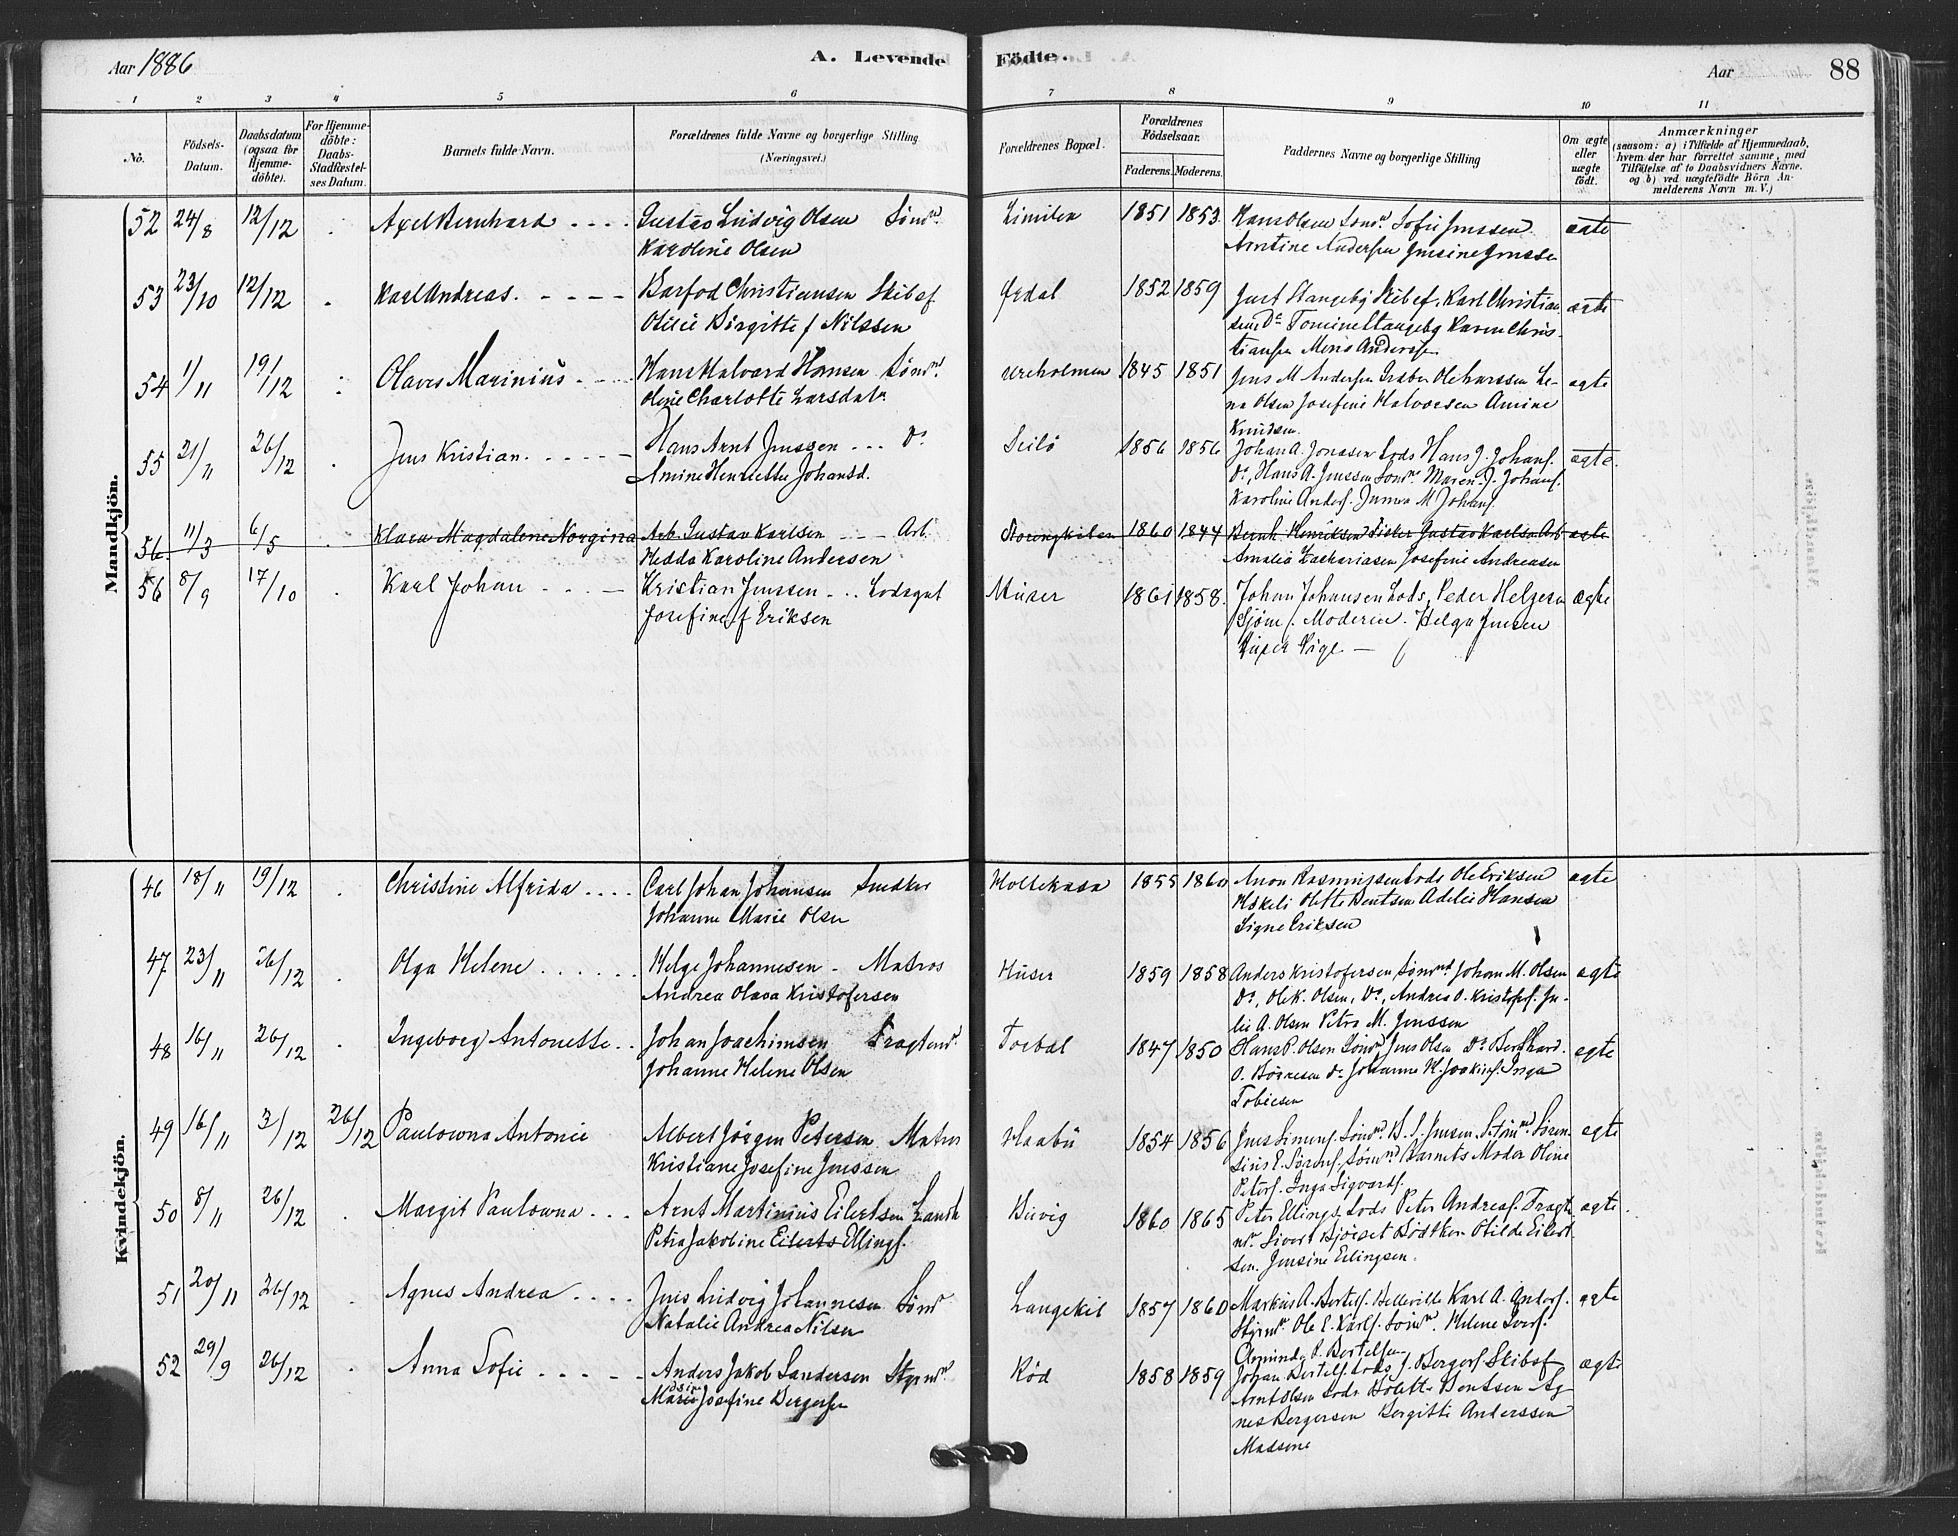 Aar 1886
A. Levende Födte.
Aar 88
1 2 3 4 5 6 7 8 9 10 11
No.
Födsels-Datum.
Daabsdatum (ogsaa for Hjemme-döbte).
For Hjemme-döbte: Daabs-Stadfæstel-ses Datum.
Barnets fulde Navn.
Forældrenes fulde Navne og borgerlige Stilling (Næringsvei.)
Forældrenes Bopæl.
Forældrenes Födselsaar.
Faderens. Moderens.
Faddernes Navne og borgerlige Stilling
Om ægte eller uægte födt.
Anmærkninger
(saasom: a) i Tilfælde af Hjemmedaab, hvem der har forrettet samme, med Tilföielse af to Daabsvidners Navne. og b) ved uægtefödte Börn An-melderens Navn m. V.)
Mandkjön.
52 24/8 12/12 Axel Bernhard Gustav Ludvig Olsen Sømd. 1851 1853 Hans Olsen Sømd. Sofie Jenssen ægte
Karoline Olsen Arntine Andersen
53 23/10 12/12 Karl Andreas. Barfod Christiansen Skibsf Ørdal 1852 1859 Just Stangeby Skibsf. Karl Christian- ægte
Otilie Birgitte f Nilssen sen Do Tomine Stangeby Karen Chris-
tiansen Andersen
54 1/11 19/12 Olaves Marinius Hans Halvard Hansen Sømd. 1845 1851 Jens M Andersen Graber Ole Le- ægte
Oline Charlotte Larsdatr na Olsen Josefine Halvorsen Amine
Knudsen.
55 21/11 26/12 Jens Kristian. Hans Arnt Jenssen Do 1856 1856 Johan A. Jonassen Lods Hans J. Johans. ægte.
Amine Henriette Johansd. Do, Hans A. Jenssen Sømd Maren J. Johans.
Karoline Anders. M Johans.
56 11/3 6/5 Klara Magdalene Norgina Arb. Gustav Karlsen Arb. 1860 1844 Bernh Henriksen Fisker Gustav Karlsen Arb ægte
Hedda Karoline Andersen Amalia Zachariasen Josefine Andreasen
56 8/9 17/10 Karl Johan Kristian Jenssen Lodsgut Huser 1861 1858. Johan Johansen Lods, Peder Helgesen ægte
Josefine f Eriksen Sjøm. Moderen. Helga Jensen
Huser Pige
Kvindekjön.
46 18/11 19/12 Christine Alfrida Carl Johan Johansen Snedker Holtekasa 1855 1860 Aron Rasmussen Lods Ole Eriksen ægte
Johanne Marie Olsen Olette Bentsen Adelie Hansen
Signe Eriksen
47 23/11 26/12 Olga Helene Helge Johannesen Matros Huser 1859 1858 Anders Kristofersen Sømd Johan M. Olsen ægte
Andrea Olava Kristofersen Do, Ole K. Olsen, Do, Andrea O. Kristofs. Ju-
lie A. Olsen Petra M. Jenssen
48 16/11 26/12 Ingeborg Antonette Johan Joachimsen Fragtemd. Torbal 1847 1850 Hans P. Olsen Sømd Jens Olsen Do Bernhard. ægte
Johanne Helene Olsen O. Børresen Do Johanne H. Joakims. Inga
Tobiesen
49 16/11 3/12 26/12 Paulowna Antonie Albert Jørgen Petersen. Matros Haabu 1854 1856 Jens Simons. Sømd. B. S. Jensen Sømd. Søren- ægte
Kristiane Josefine Jenssen sius E. Sørens. Sømd Barnets Moder Oline
Peters. Inga Sigvards.
50 8/11 26/12 Margit Paulowna Arnt Martinius Eilertsen Landh Buvig 1860 1865 Peter Ellings. Lods Peter Andreas. Fragte- ægte
Petra Jakobine Eilerts Ellings. md. Sivert Bødtker Otilde Eilert
sen. Jensine Ellingsen.
51 20/11 26/12 Agnes Andrea Jens Ludvig Johannesen Sømd Langekil 1857 1860 Markus A. Bertels. Belleville Karl A. Anders. ægte
Natalie Andrea Nilsen Styrmd. Ole E. Karls. Sømd. Helene
Bertelsen
52 29/9 26/12 Anna Sofie Anders Jakob Sandersen Styrmd Rød 1858 1859 Johan Bertels. Lods J. Bergers. Skibsf ægte
Josefine Bergersen Arnt Olsen Lods Bolette Bentsen Ag-
nes Bergersen Bergitte Anderssen
Madsene